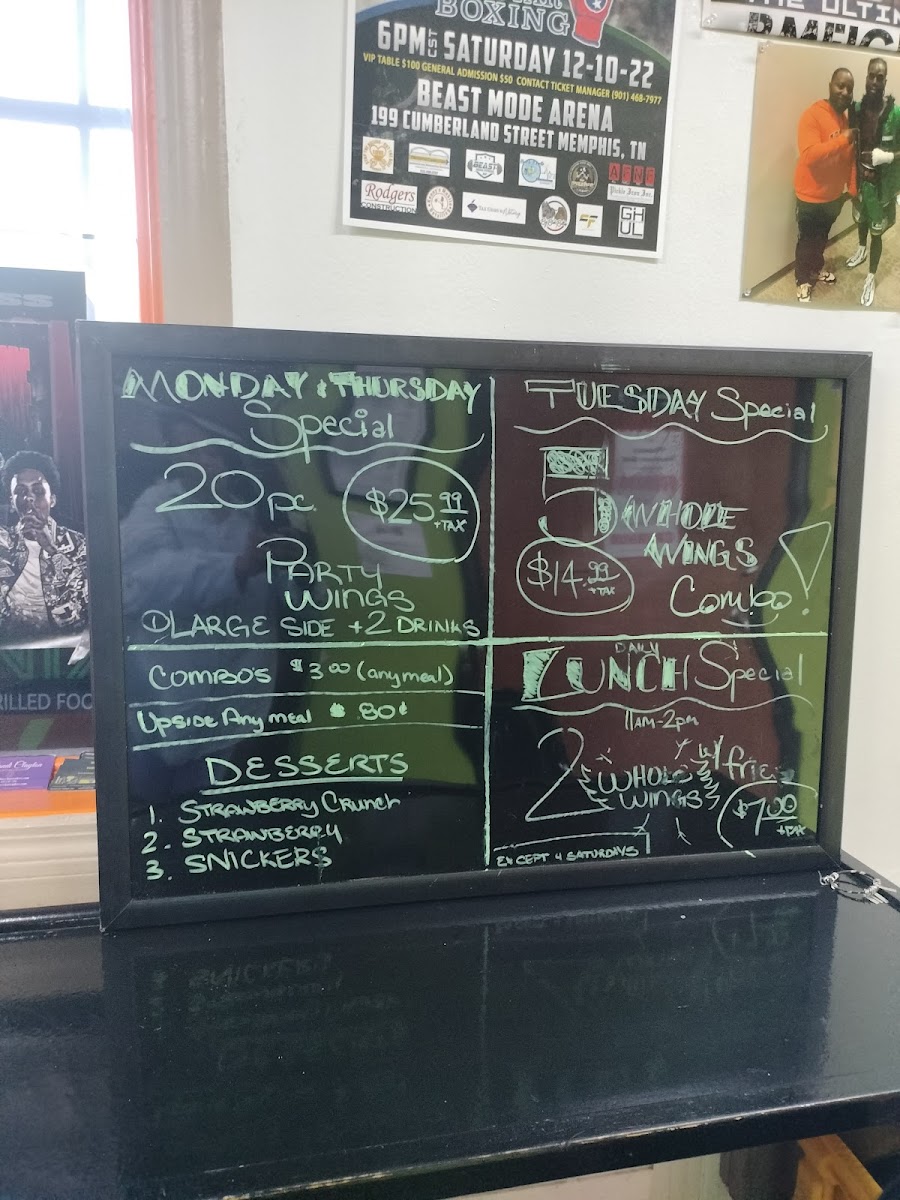 BOXING
6PM CST SATURDAY 12-10-22
VIP TABLE $100 GENERAL ADMISSION $50 CONTACT TICKET MANAGER (901) 468-7977
BEAST MODE ARENA
199 CUMBERLAND STREET MEMPHIS, TN
BEAST
Rodgers
CONSTRUCTION
GHUL
THE ULTIM
SS
RILLED FOO
MONDAY & THURSDAY
Special
20 pc. $25.99
+TAX
PARTY
WINGS
1 LARGE SIDE + 2 DRINKS
COMBO'S $3.00 (any meal)
UPSIDE Any meal $ .80¢
DESSERTS
1. STRAWBERRY CRUNCH
2. STRAWBERRY
3. SNICKERS
TUESDAY Special
5 WHOLE
WINGS
$14.99
+TAX
Combo!
DAILY
LUNCH Special
11AM-2PM
2 WHOLE
WINGS
w/ fries
$7.00
+TAX
EXCEPT 4 SATURDAYS